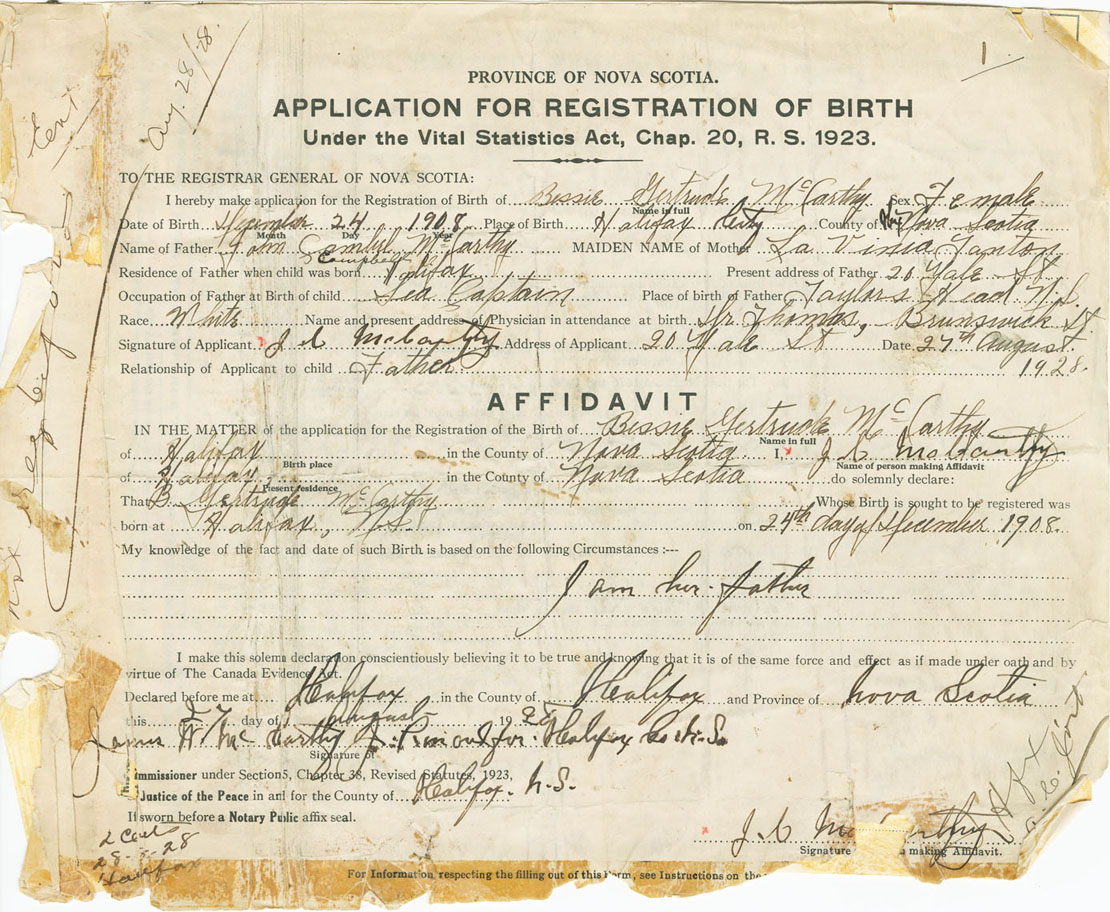 1
Aug. 28/28.
Ent
PROVINCE OF NOVA SCOTIA.
APPLICATION FOR REGISTRATION OF BIRTH
Under the Vital Statistics Act, Chap. 20, R. S. 1923.
TO THE REGISTRAR GENERAL OF NOVA SCOTIA:
I hereby make application for the Registration of Birth of Bessie Gertrude McCarthy Sex Female
Name in full
Date of Birth December 24 1908 Place of Birth Halifax City County of Nova Scotia
Month Day Year
Name of Father John McCarthy MAIDEN NAME of Mother La Vinia Tanton
Campbell
Residence of Father when child was born Halifax Present address of Father 20 Yale St
Occupation of Father at Birth of child Sea Captain Place of birth of Father Taylors Head N.S.
Race White Name and present address of Physician in attendance at birth Dr Thomas, Brunswick St.
Signature of Applicant J C McCarthy Address of Applicant 20 Yale St Date 27th August
Relationship of Applicant to child Father 1928.
AFFIDAVIT
IN THE MATTER of the application for the Registration of the Birth of Bessie Gertrude McCarthy
Name in full
of Halifax in the County of Nova Scotia I, J C McCarthy
Birth place Name of person making Affidavit
of Halifax in the County of Nova Scotia do solemnly declare:
Present residence
That B Gertrude McCarthy Whose Birth is sought to be registered was
born at Halifax, NS on 24th day of December 1908.
My knowledge of the fact and date of such Birth is based on the following Circumstances :---
I am her father
I make this solemn declaration conscientiously believing it to be true and knowing that it is of the same force and effect as if made under oath and by
virtue of The Canada Evidence Act.
Declared before me at Halifax in the County of Halifax and Province of Nova Scotia
this 27 day of August 1928
James W. McCarthy J.P. in and for Halifax Co. N.S.
Signature of
Commissioner under Section5, Chapter 38, Revised Statutes, 1923,
Justice of the Peace in and for the County of Halifax. N.S.
If sworn before a Notary Public affix seal.
28-8-28
Halifax
J. C McCarthy
Signature making Affidavit.
For Information respecting the filling out of this Form, see Instructions on the